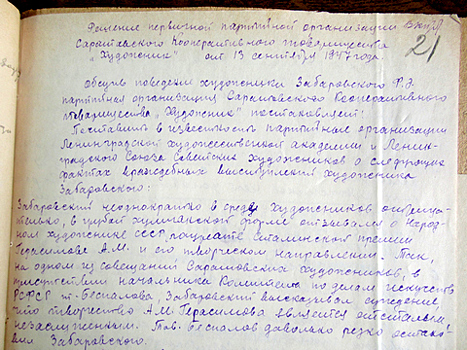 Решение первичной партийной организации ВКП/б
21
Саратовского Кооперативного товарищества
"Художник" от 13 сентября 1947 года.
Обсудив поведение художника Забаровского Ф.Э.
партийная организация Саратовского Кооперативного
товарищества "Художник" постановляет:
Поставить в известность партийные организации
Ленинградской художественной академии и Ленин-
градского Союза Советских художников о следующих
фактах враждебных выступлений художника
Забаровского:
Забаровский неоднократно в среде художников отрица-
тельно, в грубой хулиганской форме отзывался о Народ-
ном художнике СССР, лауреате Сталинской премии
Герасимове А.М. и его творческом направлении. Так,
на одном из совещаний Саратовских художников, в
присутствии начальника Комитета по делам искусств
РСФСР т. Беспалова, Забаровский высказывал суждение,
что творчество А.М. Герасимова является
незаслуженным. Тов. Беспалов довольно резко остано-
вил Забаровского.